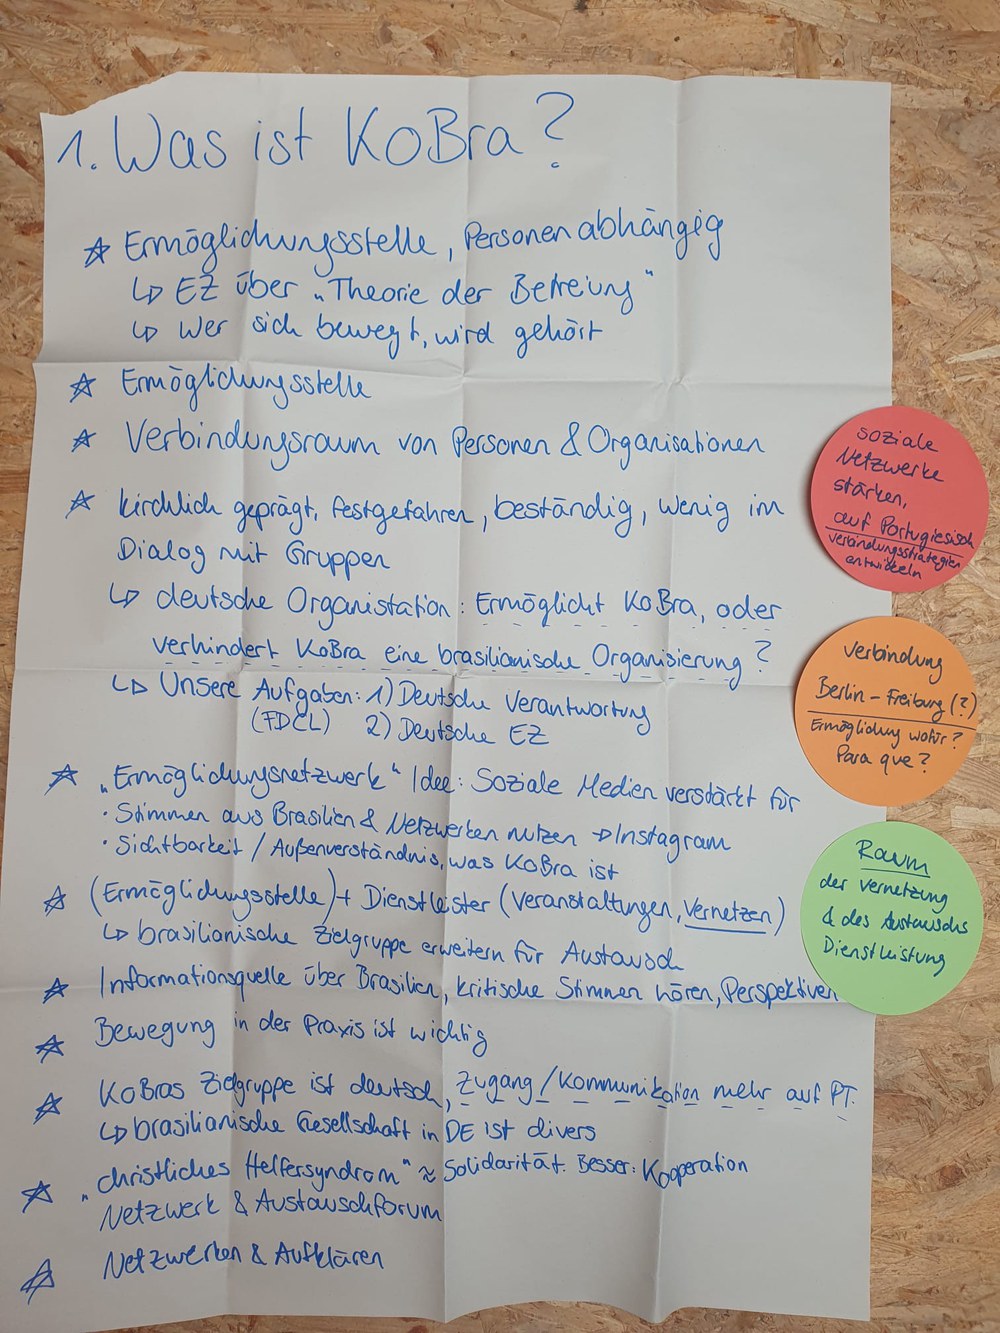 1. Was ist KoBra?
☆ Ermöglichungsstelle, Personenabhängig
↳ EZ über „Theorie der Befreiung“
↳ Wer sich bewegt, wird gehört
☆ Ermöglichungsstelle
☆ Verbindungsraum von Personen & Organisationen
☆ kirchlich geprägt, festgefahren, beständig, wenig im
Dialog mit Gruppen
↳ deutsche Organistation: Ermöglicht KoBra, oder
verhindert KoBra eine brasilianische Organisierung?
↳ Unsere Aufgaben: 1) Deutsche Verantwortung
(FDCL) 2) Deutsche EZ
☆ „Ermöglichungsnetzwerk“ Idee: Soziale Medien verstärkt für
· Stimmen aus Brasilien & Netzwerken nutzen → Instagram
· Sichtbarkeit / Außenverständnis, was KoBra ist
☆ (Ermöglichungsstelle) + Dienstleister (Veranstaltungen, Vernetzen)
↳ brasilianische Zielgruppe erweitern für Austausch
☆ Informationsquelle über Brasilien, kritische Stimmen hören, Perspektiven
☆ Bewegung in der Praxis ist wichtig
☆ KoBras Zielgruppe ist deutsch, Zugang / Kommunikation mehr auf PT.
↳ brasilianische Gesellschaft in DE ist divers
☆ „christliches Helfersyndrom“ ≈ Solidarität. Besser: Kooperation
Netzwerk & Austauschforum
☆ Netzwerken & Aufklären
soziale
Netzwerke
stärken,
auf Portugiesisch
Verbindungsstrategien
entwickeln
Verbindung
Berlin – Freiburg (?)
Ermöglichung wofür?
Para que?
Raum
der Vernetzung
& des Austauschs
Dienstleistung